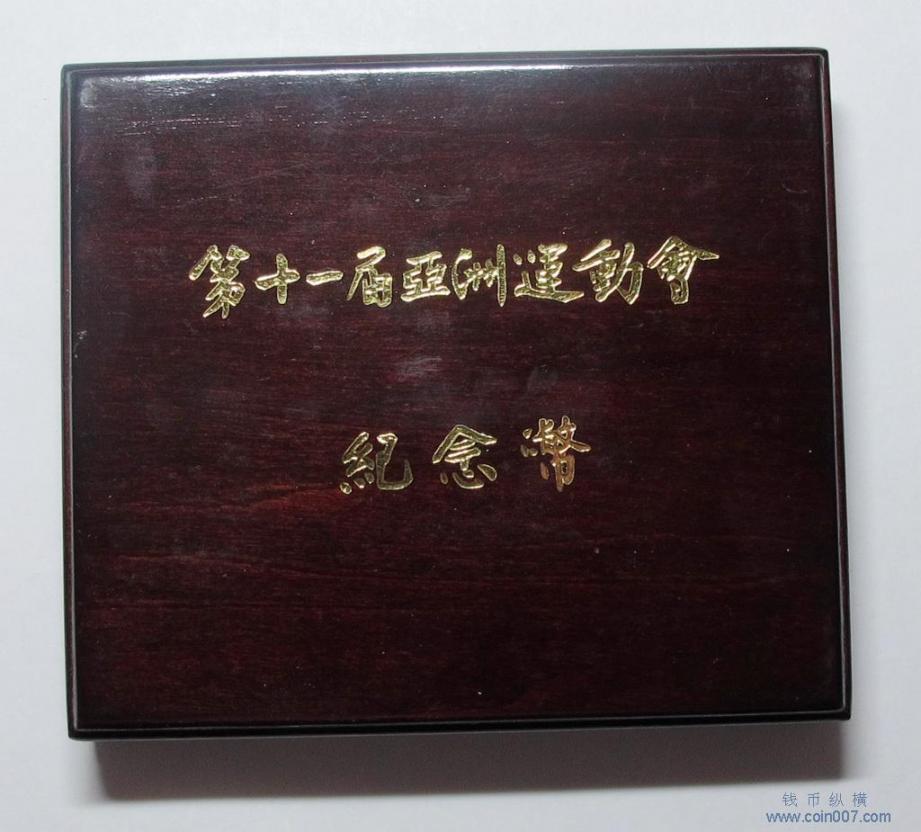 第十一届亞洲運動會
紀念幣
钱币纵横
www.coin007.com